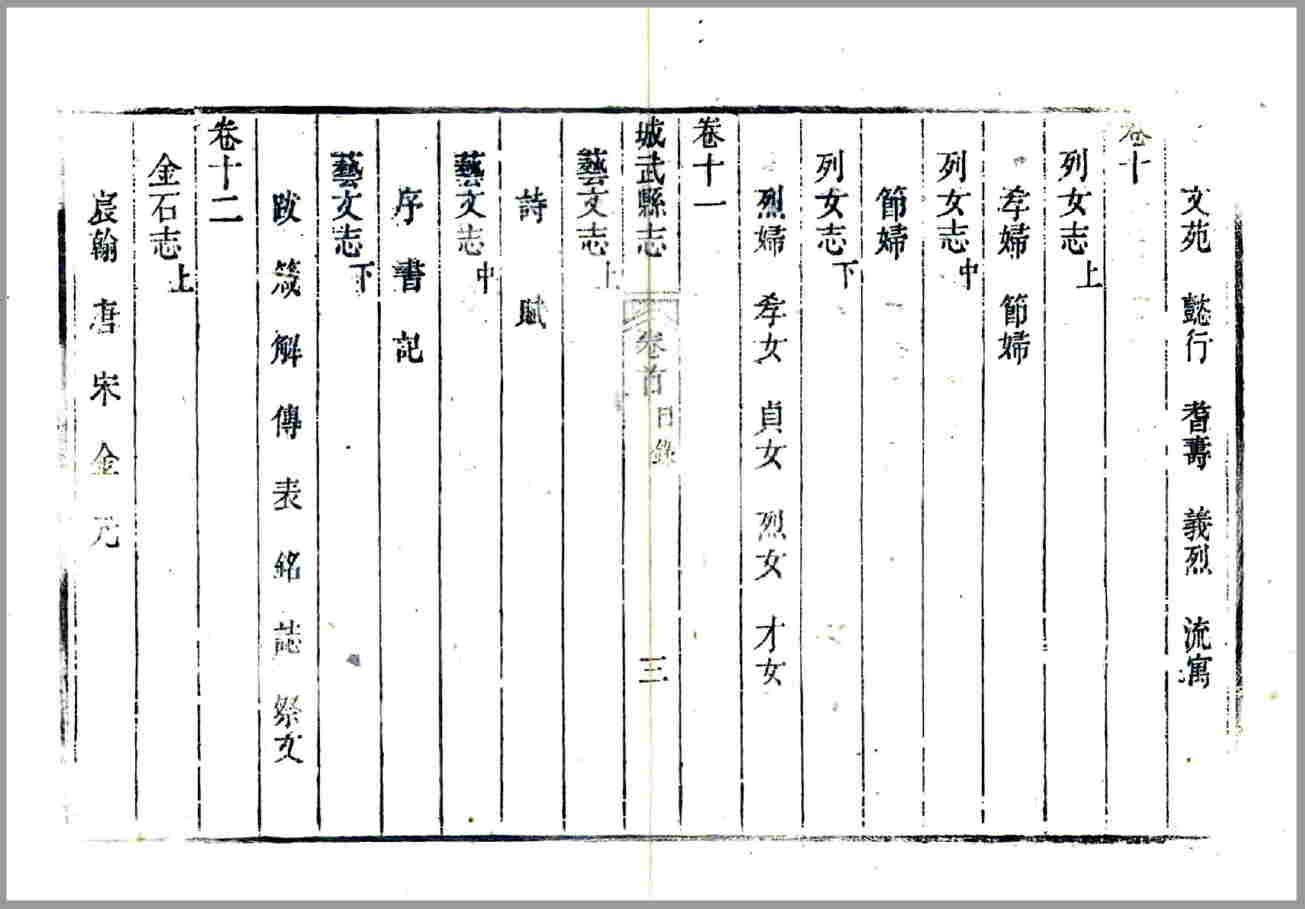 文苑 懿行 耆壽 義烈 流寓
卷十
列女志上
孝婦 節婦
列女志中
節婦
列女志下
烈婦 孝女 貞女 烈女 才女
卷十一
城武縣志 卷首 目錄 三
藝文志上
詩 賦
藝文志中
序 書 記
藝文志下
跋 箴 解 傳 表 銘 誌 祭文
卷十二
金石志上
宸翰 唐 宋 金 元